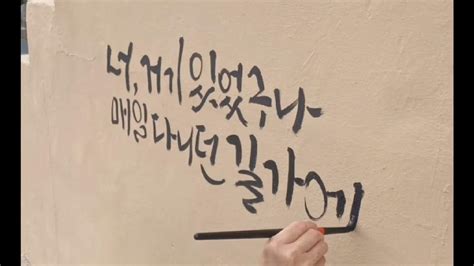 너, 거기 있었구나
매일 다니던 길가에